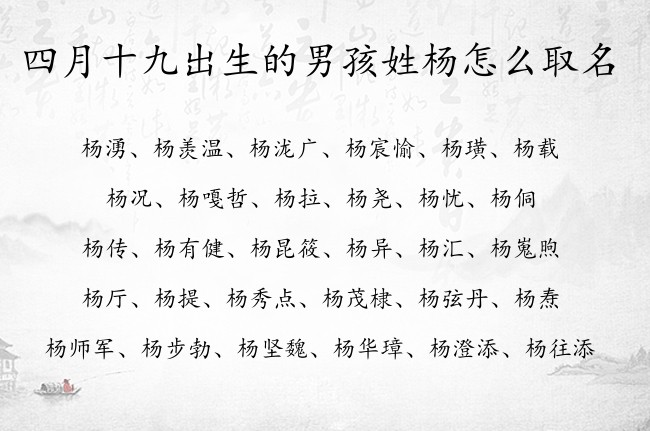 四月十九出生的男孩姓杨怎么取名
杨湧、杨羡温、杨泷广、杨宸愉、杨璜、杨载
杨况、杨嘎哲、杨拉、杨尧、杨忧、杨侗
杨传、杨有健、杨昆筱、杨异、杨汇、杨嵬煦
杨厅、杨提、杨秀点、杨茂棣、杨弦丹、杨焘
杨师军、杨步勃、杨坚魏、杨华璋、杨澄添、杨往添